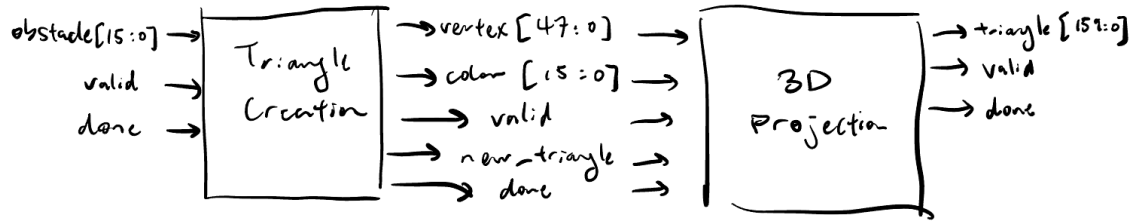 obstacle[15:0]
valid
done
Triangle
Creation
vertex [47:0]
color [15:0]
valid
new_triangle
done
3D
Projection
triangle [159:0]
valid
done